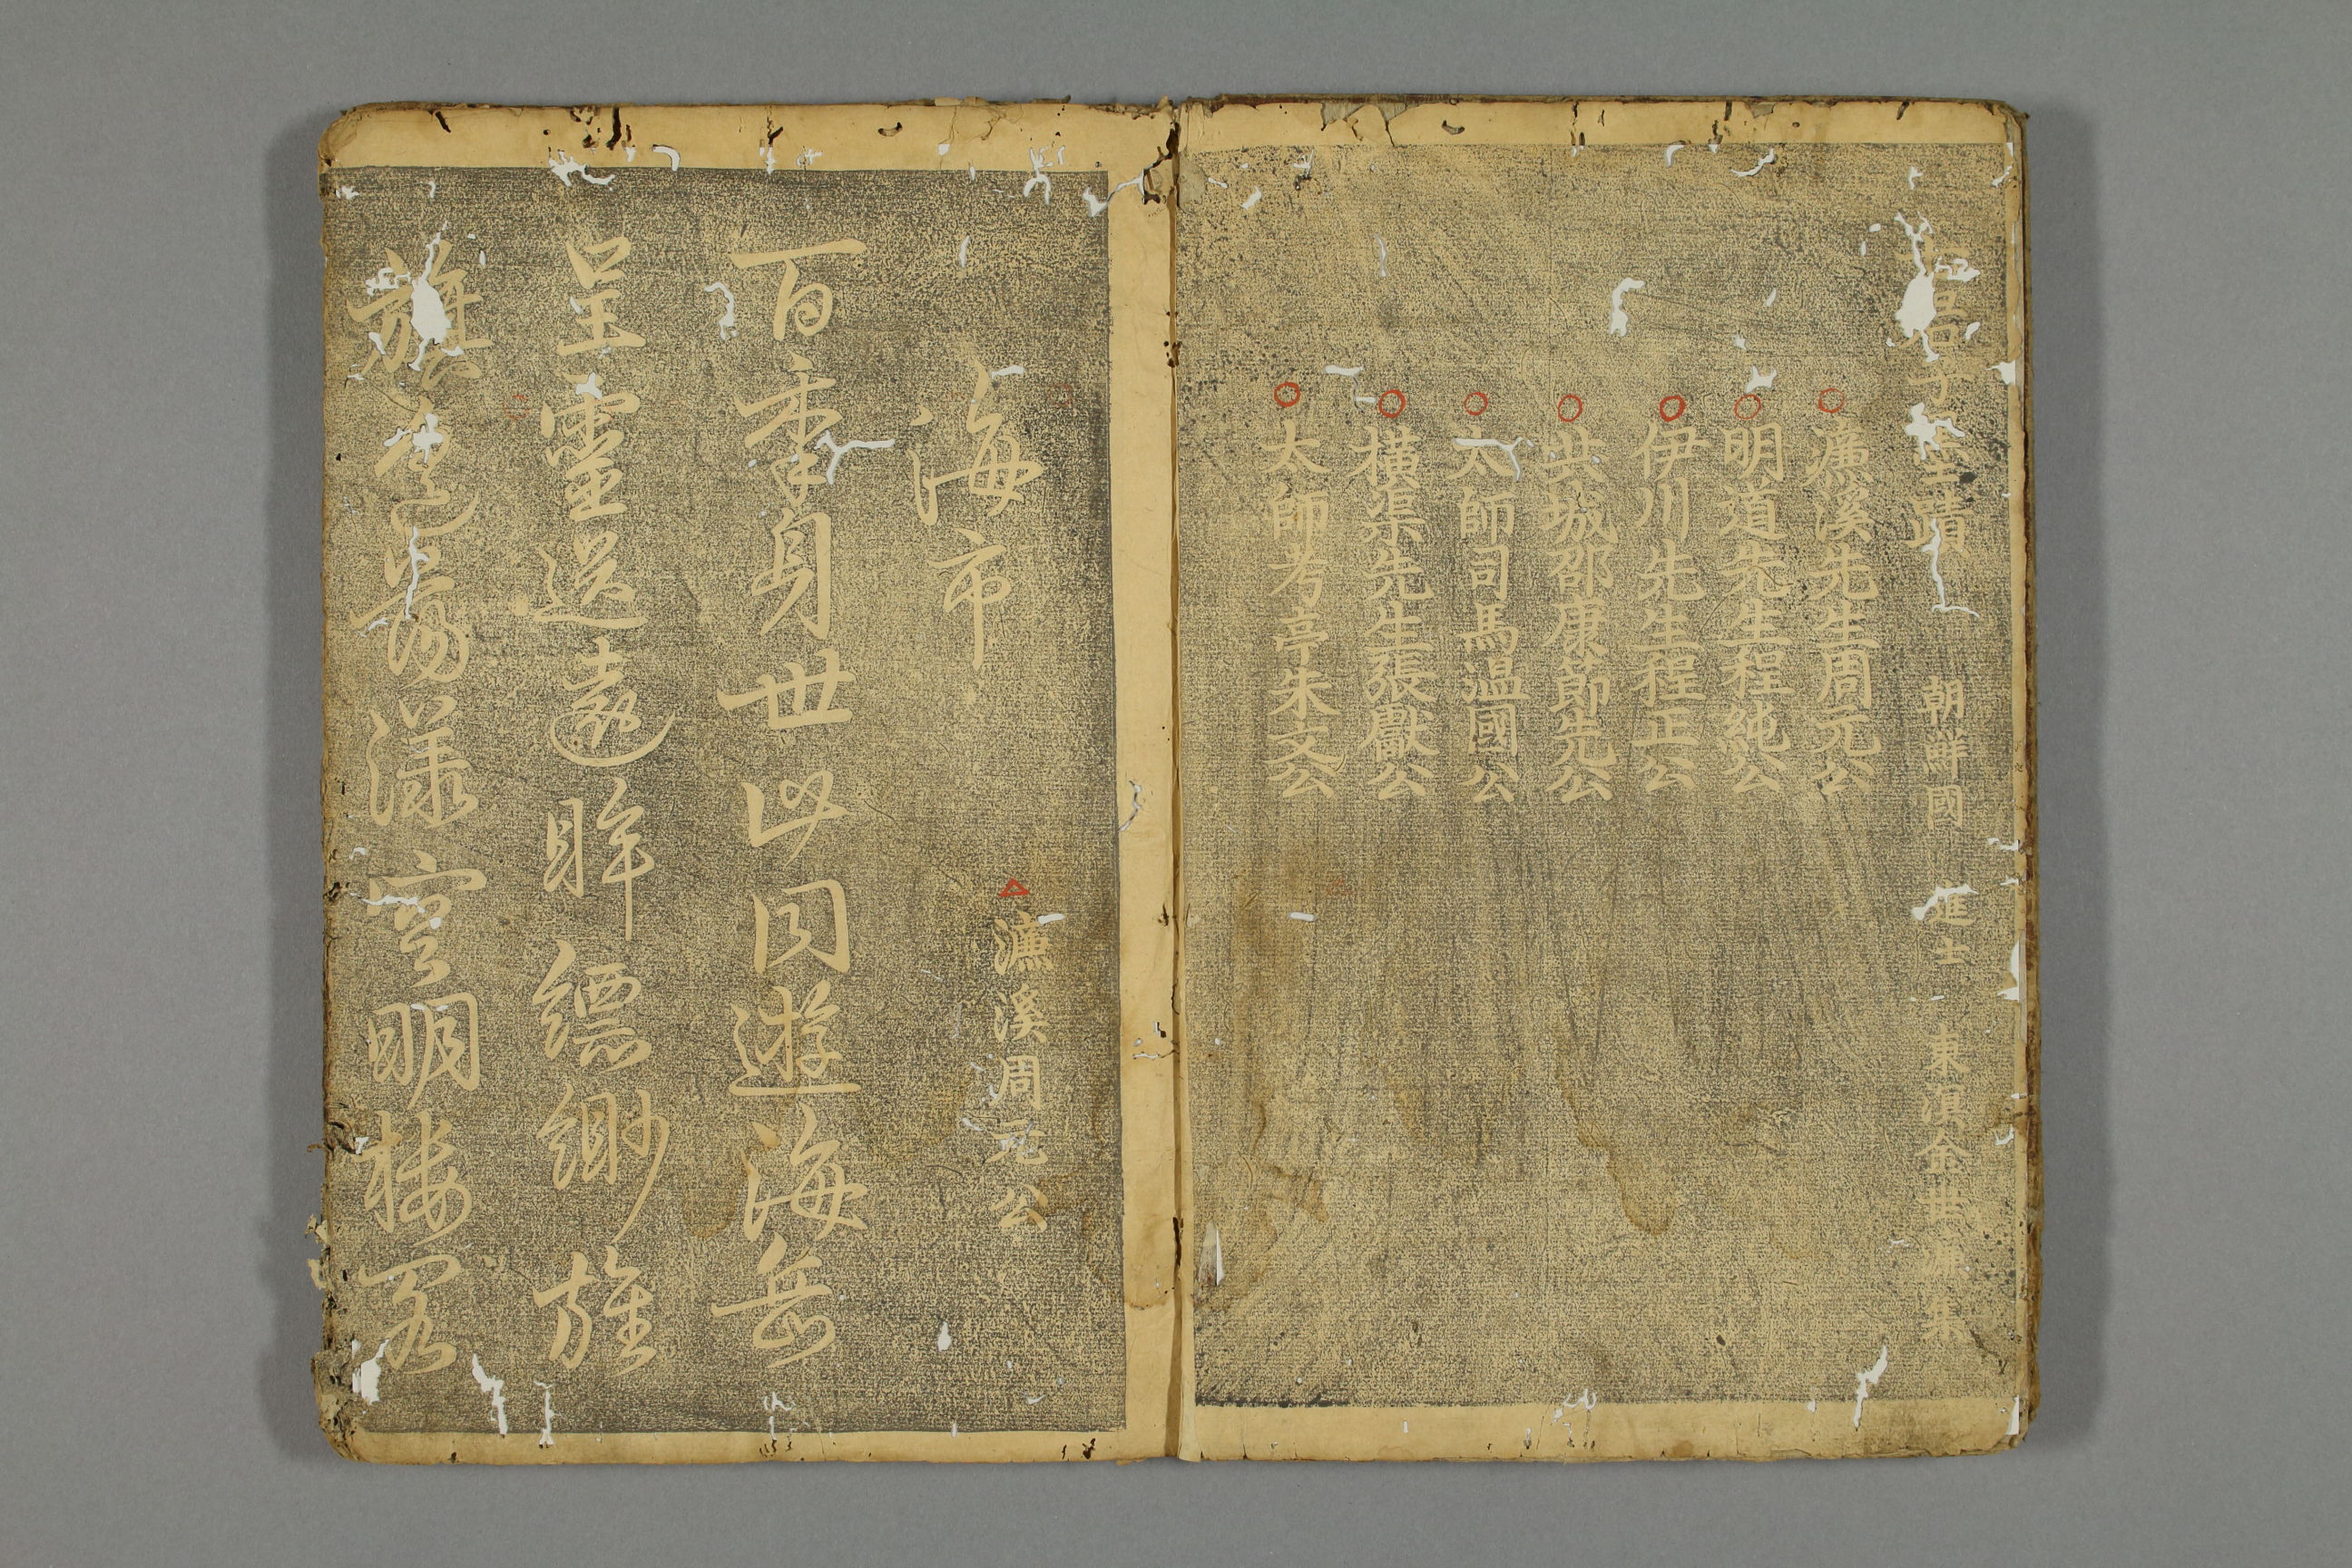 子蹟 朝鮮國 進士 東溟金世濂集
濂溪先生周元公
明道先生程純公
伊川先生程正公
共城邵康節先公
太師司馬溫國公
橫渠先生張獻公
太師考亭朱文公
濂溪周元公
海市
百年身世此同遊海岳
呈靈送遠眸縹緲旌
旗蕩漾空明樓閣